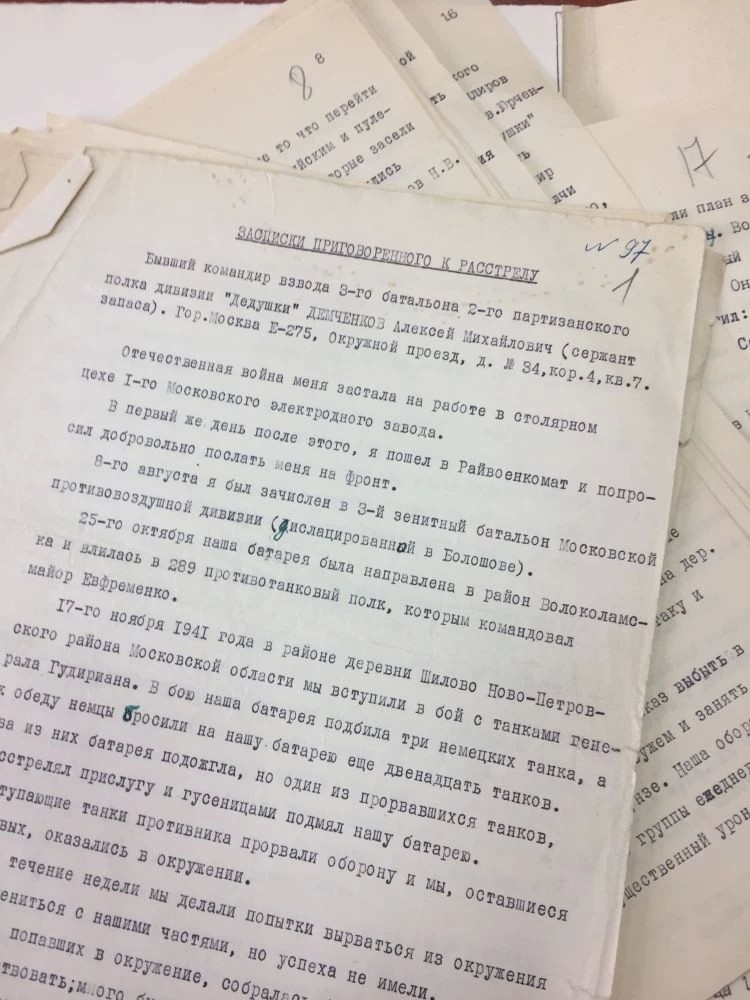 16
8
8
ой
то что перейти
ть
ого
йским и пуле-
диров
орые засели
в.Юрчен-
лись
ушки"
ов Н.В.
ия
ть
ир
лчи
17
ли план з
ЗАСПИСКИ ПРИГОВОРЕННОГО К РАССТРЕЛУ
№ 97
1
Бывший командир взвода 3-го батальона 2-го партизанского
полка дивизии "Дедушки" ДЕМЧЕНКОВ Алексей Михайлович (сержант
запаса). Гор.Москва Е-275, Окружной проезд, д. № 34,кор.4,кв.7.
Отечественная война меня застала на работе в столярном
цехе I-го Московского электродного завода.
В первый же день после этого, я пошел в Райвоенкомат и попро-
сил добровольно послать меня на фронт.
8-го августа я был зачислен в 3-й зенитный батальон Московской
противовоздушной дивизии (дислацированной в Болошове).
25-го октября наша батарея была направлена в район Волоколамс-
ка и влилась в 289 противотанковый полк, которым командовал
майор Евфременко.
17-го ноября 1941 года в районе деревни Шилово Ново-Петров-
ского района Московской области мы вступили в бой с танками гене-
рала Гудириана. В бою наша батарея подбила три немецких танка, а
к обеду немцы бросили на нашу батарею еще двенадцать танков.
ва из них батарея подожгла, но один из прорвавшихся танков,
сстрелял прислугу и гусеницами подмял нашу батарею.
тупающие танки противника прорвали оборону и мы, оставшиеся
вых, оказались в окружении.
течение недели мы делали попытки вырваться из окружения
ениться с нашими частями, но успеха не имели.
попавших в окружение, собралась
твовать;много
Во
ый
Он
ил:
на дер.
таку и
каз выбыть в
ужем и занять
нзе. Наша обор
группы ежеднев
ущественный урон